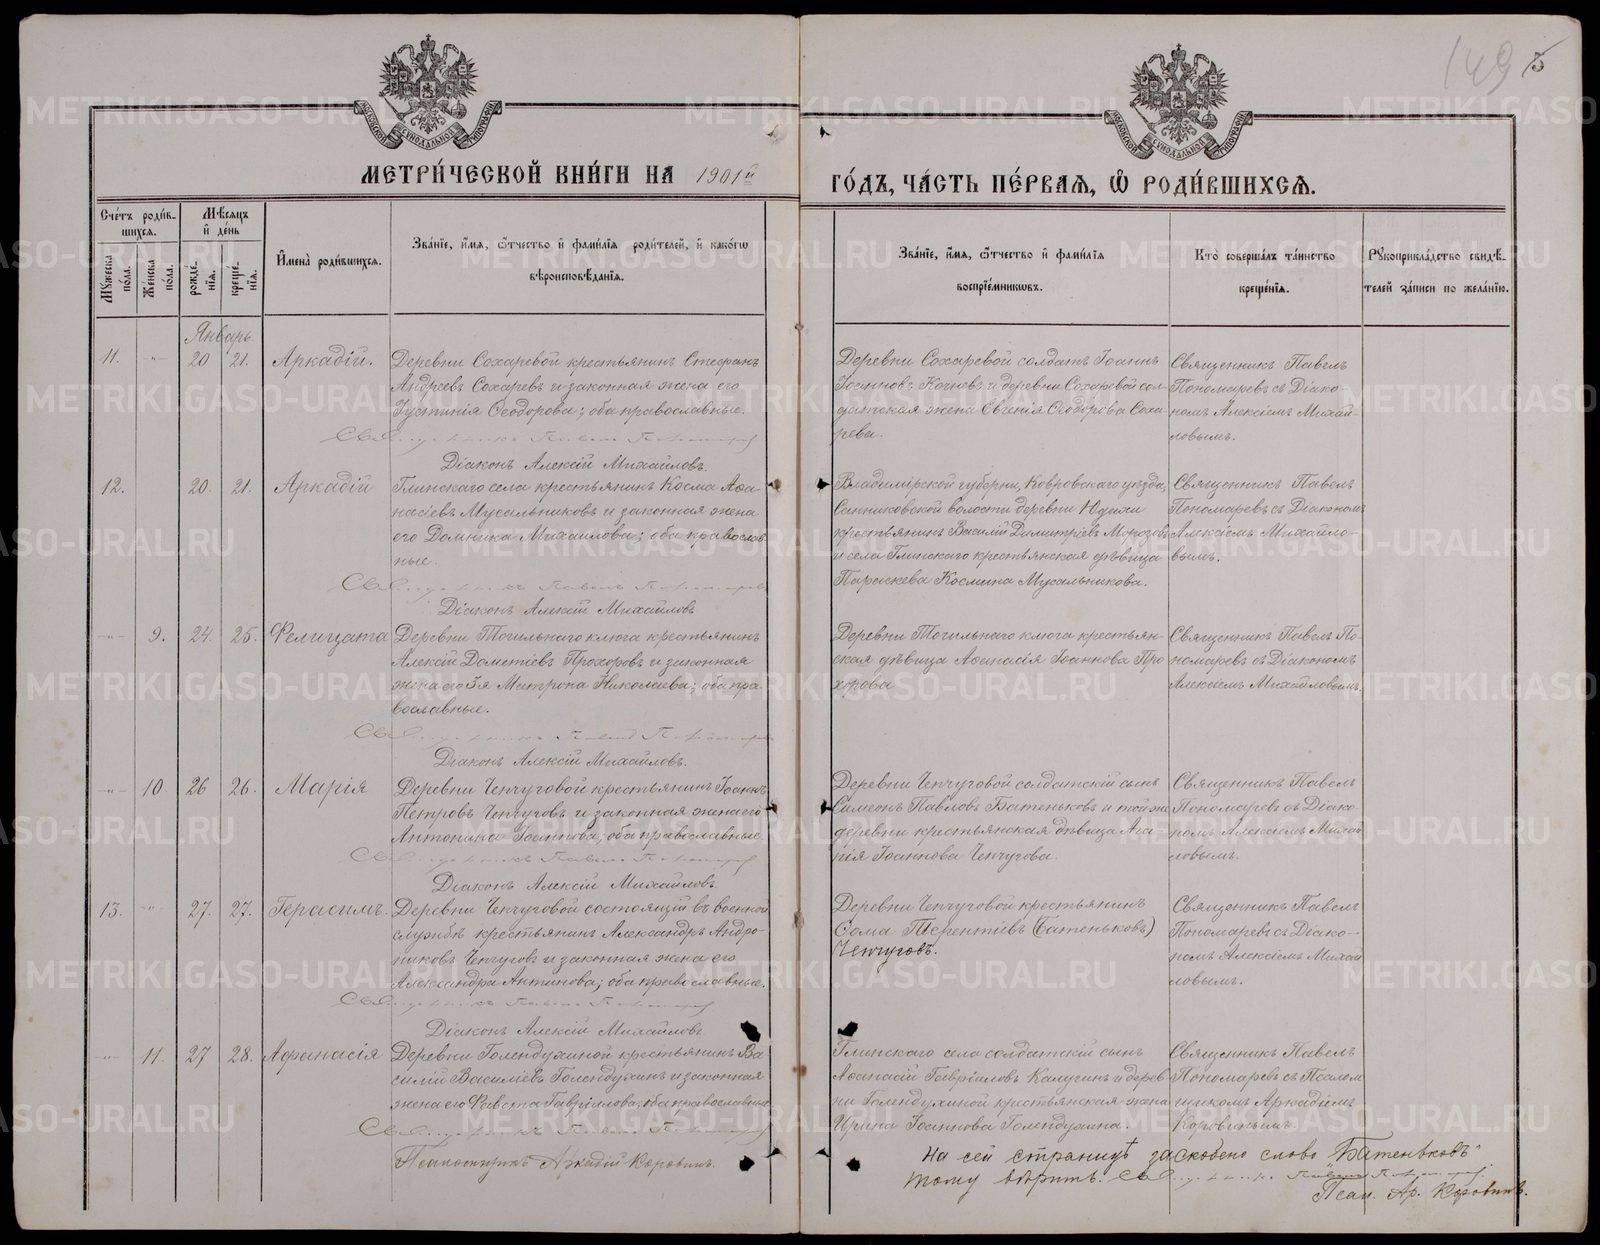 149 5
МОСКОВСКОЙ СУНОДАЛЬНОЙ ТИПОГРАФІИ
МОСКОВСКОЙ СУНОДАЛЬНОЙ ТИПОГРАФІИ
МЕТРИ́ЧЕСКОЙ КНИ́ГИ НА 1901й
ГО́ДЪ, ЧА́СТЬ ПЕ́РВАЯ, Ѽ РОДИ́ВШИХСЯ.
Счетъ родив-
шихся.
Мужеска
пола.
Женска
пола.
Мѣсяцъ
и день
рожде-
нія.
креще-
нія.
Имена родившихся.
Званіе, имя, ѿчество и фамилія родителей, и какогѡ
вѣроисповѣданія.
Званіе, имя, ѿчество и фамилія
воспріемниковъ.
Кто совершалъ таинство
крещенія.
Рукоприкладство свидѣ-
телей записи по желанію.
Январь
11. -„- 20 21. Аркадій.
Деревни Сохаревой крестьянинъ Стефанъ
Андреевъ Сохаревъ и законная жена его
Іустинія Ѳеодорова; оба православные.
Священникъ Павелъ Пономаревъ
Діаконъ Алексій Михайловъ.
Деревни Сохаревой солдатъ Іоаннъ
Іоанновъ Кочневъ и деревни Сохаревой сол-
датская жена Евгенія Ѳеодорова Соха-
рева.
Священникъ Павелъ
Пономаревъ съ Діако-
номъ Алексіемъ Михай-
ловымъ.
12. 20. 21. Аркадій
Глинскаго села крестьянинъ Косма Аѳа-
насіевъ Мусальниковъ и законная жена
его Домника Михаилова; оба православ-
ные.
Священникъ Павелъ Пономаревъ
Діаконъ Алексій Михайловъ
Владимірской губерніи, Ковровскаго уѣзда,
Санниковской волости деревни
крестьянинъ Василій Димитріевъ Морозовъ
и села Глинскаго крестьянская дѣвица
Параскева Космина Мусальникова.
Священникъ Павелъ
Пономаревъ съ Діакономъ
Алексіемъ Михайло-
вымъ.
-„- 9. 24. 25. Фелицата
Деревни Тогильнаго ключа крестьянинъ
Алексій Дометіевъ Прохоровъ и законная
жена его 3я Матрона Николаева; оба пра-
вославные.
Священникъ Павелъ Пономаревъ
Діаконъ Алексій Михайловъ.
Деревни Тогильнаго ключа крестьян-
ская дѣвица Аѳанасія Іоаннова Про-
хорова
Священникъ Павелъ По-
номаревъ съ Діакономъ
Алексіемъ Михайловымъ.
-„- 10 26 26. Марія
Деревни Ченчуговой крестьянинъ Іоаннъ
Петровъ Ченчуговъ и законная жена его
Антонина Іоаннова; оба православные.
Священникъ Павелъ Пономаревъ
Діаконъ Алексій Михайловъ.
Деревни Ченчуговой солдатскій сынъ
Симеонъ Павловъ Батеньковъ и той же
деревни крестьянская дѣвица Ага-
пія Іоаннова Ченчугова.
Священникъ Павелъ
Пономаревъ съ Діако-
номъ Алексіемъ Михай
ловымъ.
13. -„- 27. 27. Герасимъ.
Деревни Ченчуговой состоящій въ военной
службѣ крестьянинъ Александръ Андро-
никовъ Ченчуговъ и законная жена его
Александра Антипова; оба православные.
Священникъ Павелъ Пономаревъ
Діаконъ Алексій Михайловъ
Деревни Ченчуговой крестьянинъ
Ѳома Терентіевъ (Батеньковъ)
Ченчуговъ.
Священникъ Павелъ
Пономаревъ съ Діако-
номъ Алексіемъ Михай
ловымъ.
-„- 11. 27 28. Аѳанасія
Деревни Голендухиной крестьянинъ Ва-
силій Василіевъ Голендухинъ и законная
жена его Фавста Гавріилова; оба православные
Священникъ Павелъ Пономаревъ
Псаломщикъ Аркадій Коровинъ.
Глинскаго села солдатскій сынъ
Аѳанасій Гавріиловъ Калугинъ и дерев
ни Голендухиной крестьянская жена
Ирина Іоаннова Голендухина.
Священникъ Павелъ
Пономаревъ съ Псалом
щикомъ Аркадіемъ
Коровинымъ.
На сей страницѣ заскоблено слово „Батеньковъ"
тому вѣрить. Священникъ Павелъ Пономаревъ
Псал. Ар. Коровинъ.
METRIKI.GASO-URAL.RU